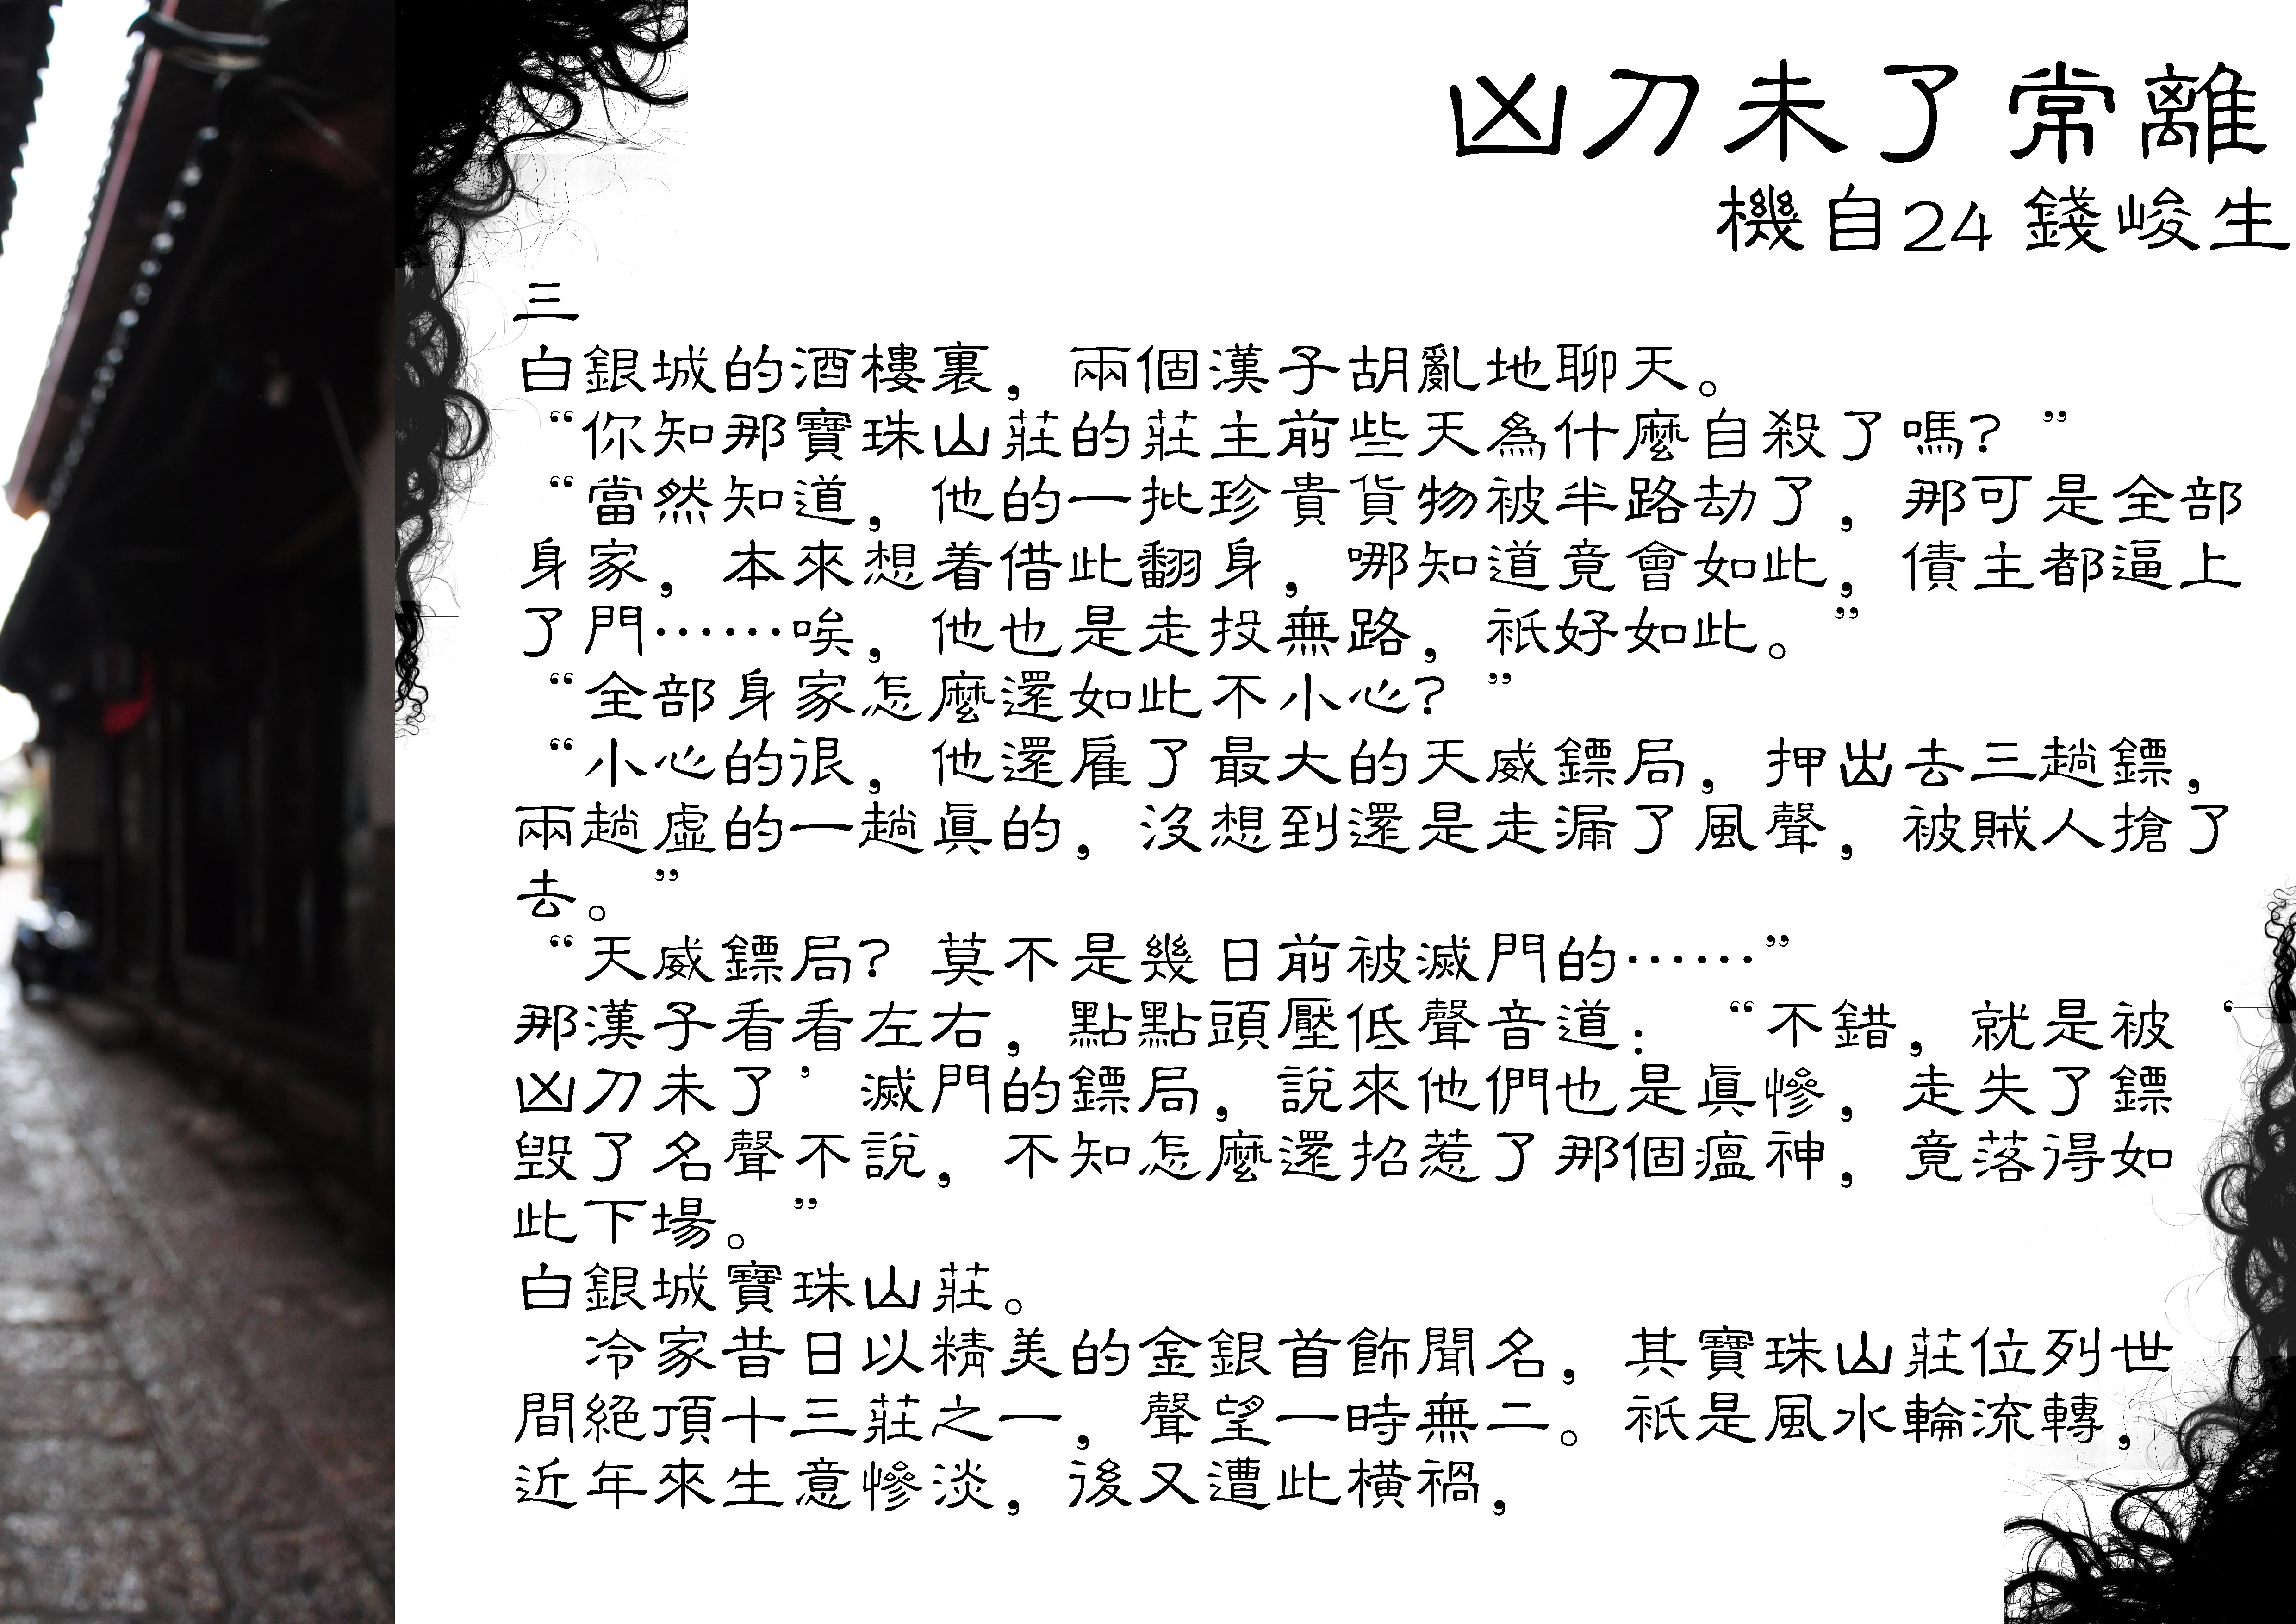 凶刀未了常離
機自24 錢峻生
三
白銀城的酒樓裏，兩個漢子胡亂地聊天。
“你知那寶珠山莊的莊主前些天為什麼自殺了嗎？”
“當然知道，他的一批珍貴貨物被半路劫了，那可是全部
身家，本來想着借此翻身，哪知道竟會如此，債主都逼上
了門……唉，他也是走投無路，祇好如此。”
“全部身家怎麼還如此不小心？”
“小心的很，他還雇了最大的天威鏢局，押出去三趟鏢，
兩趟虛的一趟真的，沒想到還是走漏了風聲，被賊人搶了
去。”
“天威鏢局？莫不是幾日前被滅門的……”
那漢子看看左右，點點頭壓低聲音道：“不錯，就是被‘
凶刀未了’滅門的鏢局，說來他們也是真慘，走失了鏢
毀了名聲不說，不知怎麼還招惹了那個瘟神，竟落得如
此下場。”
白銀城寶珠山莊。
冷家昔日以精美的金銀首飾聞名，其寶珠山莊位列世
間絕頂十三莊之一，聲望一時無二。祇是風水輪流轉，
近年來生意慘淡，後又遭此橫禍，